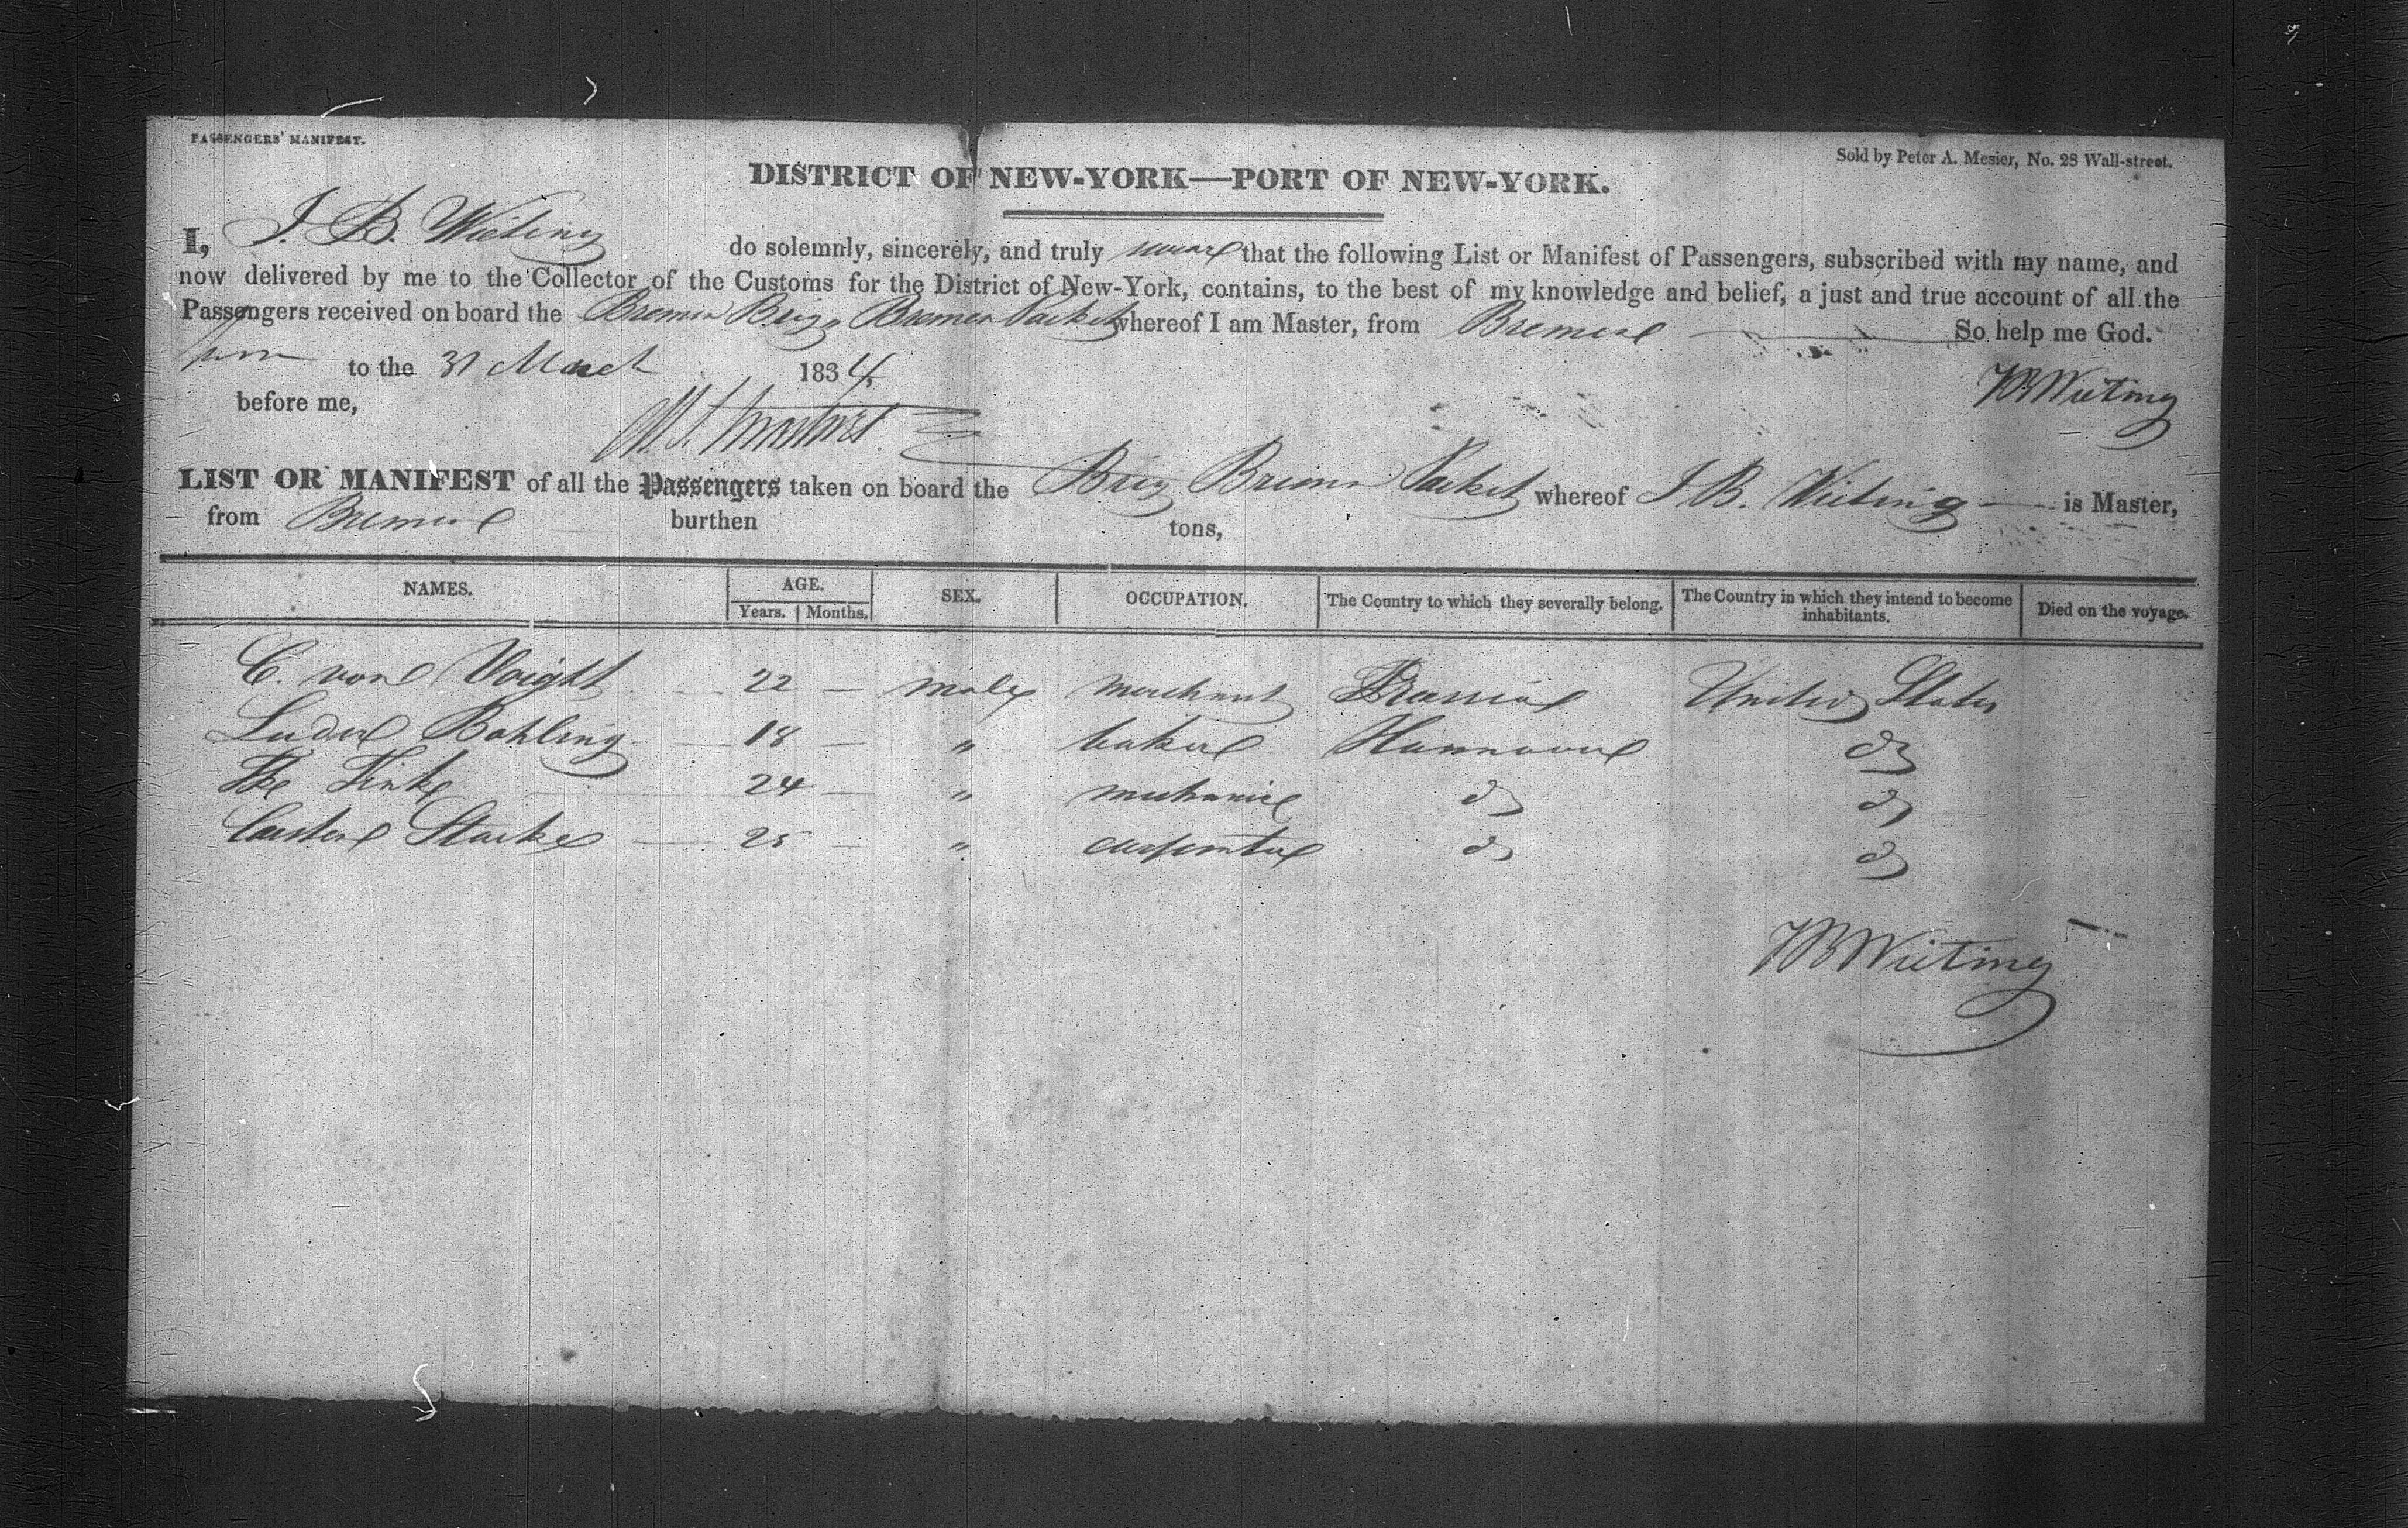 PASSENGERS' MANIFEST.
Sold by Peter A. Mesier, No. 28 Wall-street.
DISTRICT OF NEW-YORK—PORT OF NEW-YORK.
I, J. B. Wieting do solemnly, sincerely, and truly swear that the following List or Manifest of Passengers, subscribed with my name, and
now delivered by me to the Collector of the Customs for the District of New-York, contains, to the best of my knowledge and belief, a just and true account of all the
Passengers received on board the Bremen Brig Bremen Packet whereof I am Master, from Bremen So help me God.
Sworn to the 31 March 1834
JBWieting
before me,
LIST OR MANIFEST of all the Passengers taken on board the Brig Bremen Packet whereof J. B. Wieting is Master,
from Bremen burthen tons,
NAMES. AGE. SEX. OCCUPATION. The Country to which they severally belong. The Country in which they intend to become inhabitants. Died on the voyage.
Years. Months.
C. von Voight 22 — male merchant Prussia United States
Luder Bohling 18 — " baker Hannover do
Finke 24 — " mechanic do do
Carsten Starke 25 — " carpenter do do
JBWieting